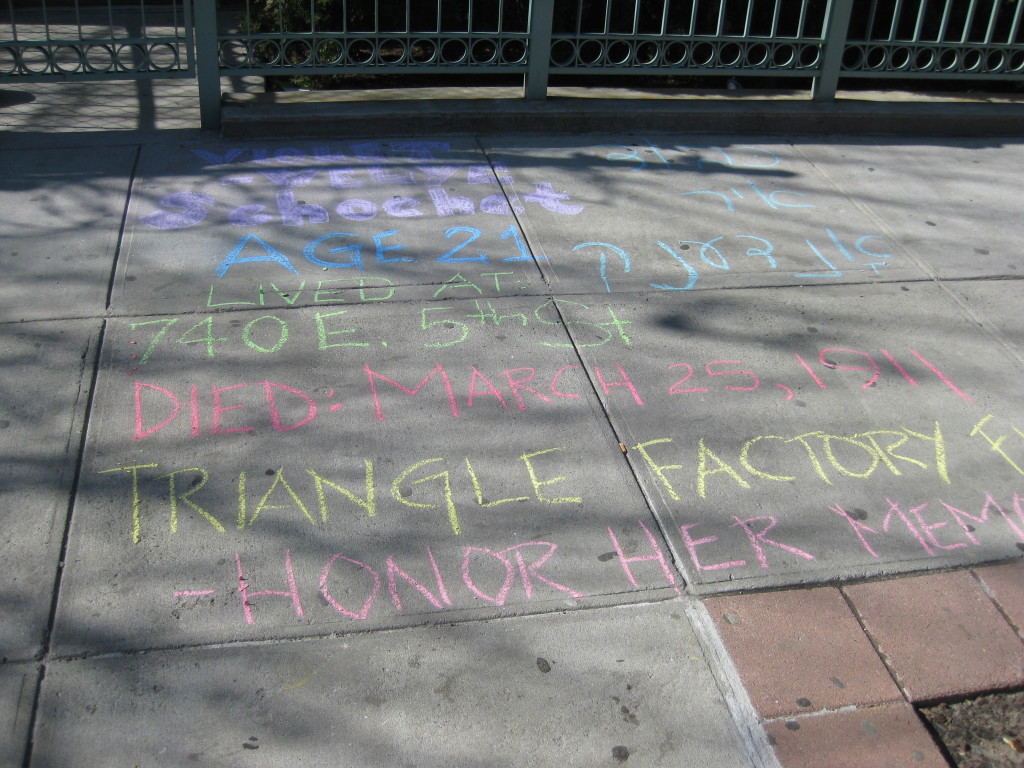 VIOLET
Schochet
AGE 21
LIVED AT:
740 E. 5th St
DIED: MARCH 25, 1911
TRIANGLE FACTORY FI
-HONOR HER MEMO
איר
אָנדענק